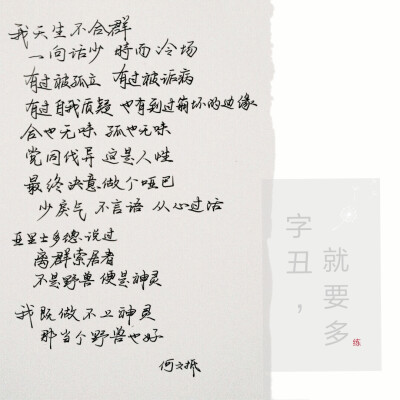 我天生不合群
一向话少 时而冷场
有过被孤立 有过被诟病
有过自我质疑 也有到过崩坏的边缘
合也无味 孤也无味
党同伐异 这是人性
最终决意做个哑巴
少戾气 不言语 从心过活
亚里士多德说过
离群索居者
不是野兽 便是神灵
我既做不了神灵
那当个野兽也好
字丑，
就要多
练